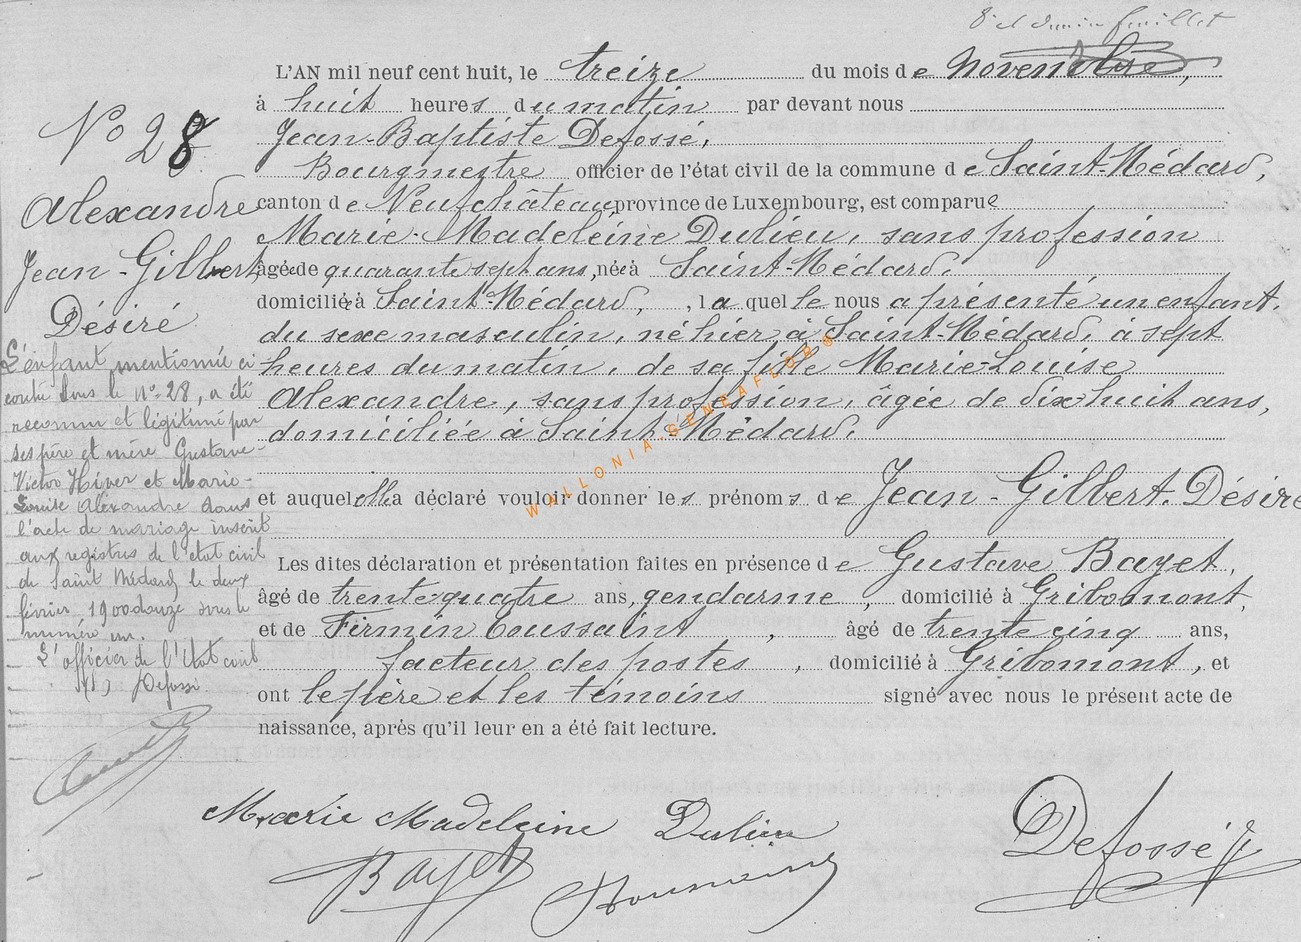 8e et dernier feuillet
L'AN mil neuf cent huit, le treize du mois de Novembre,
à huit heures du matin par devant nous
Jean-Baptiste Defossé,
Bourgmestre officier de l'état civil de la commune de Saint-Médard,
canton de Neufchâteau, province de Luxembourg, est comparue
Marie-Madeleine Dulieu, sans profession
âgée de quarante sept ans, née à Saint-Médard,
domiciliée à Saint-Médard, , laquelle nous a présenté un enfant
du sexe masculin, né hier à Saint-Médard, à sept
heures du matin, de sa fille Marie-Louise
Alexandre, sans profession, âgée de dix huit ans,
domiciliée à Saint-Médard,
et auquel elle a déclaré vouloir donner les prénoms de Jean-Gilbert-Désiré
Les dites déclaration et présentation faites en présence de Gustave Bayet,
âgé de trente quatre ans, gendarme , domicilié à Gribomont,
et de Firmin Toussaint , âgé de trente cinq ans,
facteur des postes , domicilié à Gribomont, et
ont le père et les témoins signé avec nous le présent acte de
naissance, après qu'il leur en a été fait lecture.
No 28
Alexandre
Jean-Gilbert
Désiré
L'enfant mentionné ci
contre sous le No 28, a été
reconnu et légitimé par
ses père et mère Gustave-
Victor Hiver et Marie-
Louise Alexandre dans
l'acte de mariage inscrit
aux registres de l'état civil
de Saint Médard, le deux
février 1900douze sous le
numéro un.
L'officier de l'état civil
(s) Defossé
Marie Madeleine Dulieu
Bayet
Defossé
WALLONIA.GENEAFLOR®